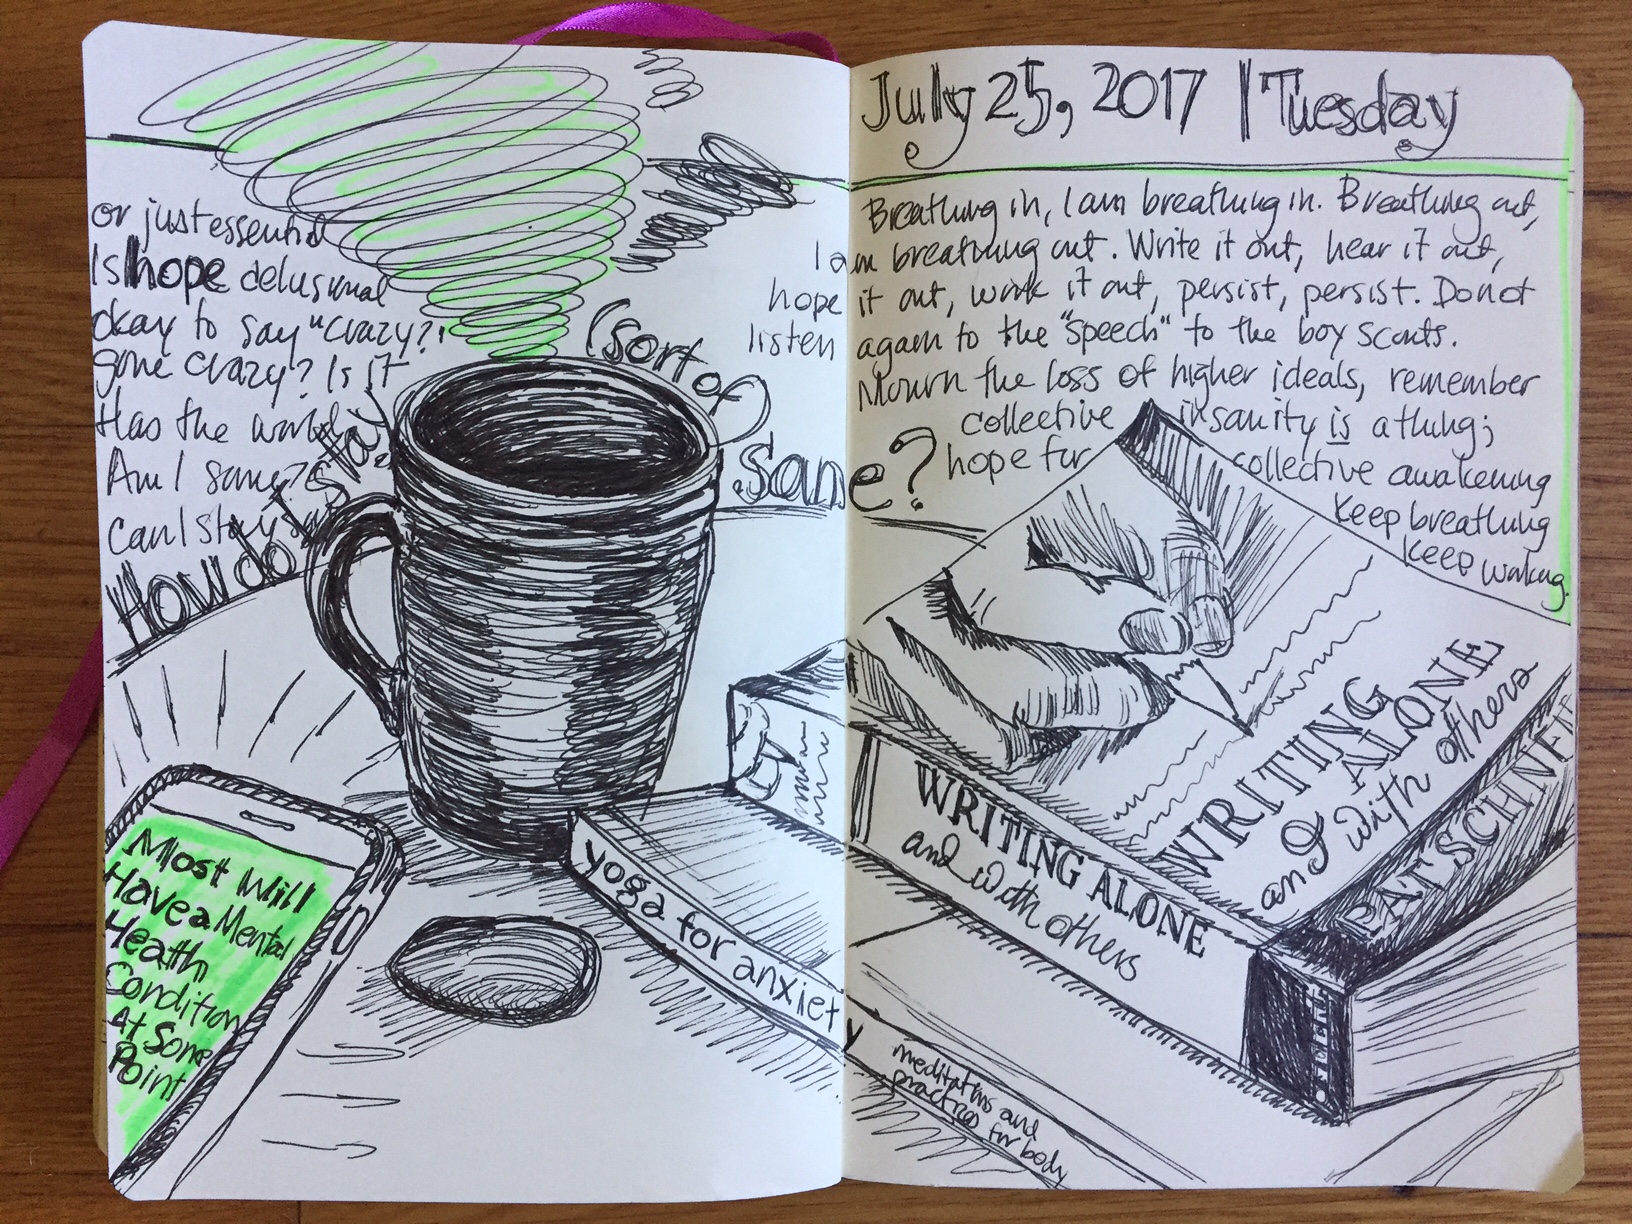 July 25, 2017 | Tuesday
or just essential
Is hope delusional
okay to say "crazy?"
gone crazy? Is it
Has the world
Am I sane?
Can I stay
How do I stay
(sort of)
sane?
Breathing in, I am breathing in. Breathing out,
I am breathing out. Write it out, hear it out,
hope it out, work it out, persist, persist. Do not
listen again to the "speech" to the boy scouts.
Mourn the loss of higher ideals, remember
collective insanity is a thing;
hope for collective awakening
Keep breathing
Keep waking.
Most Will
Have a Mental
Health
Condition
At Some
Point
yoga for anxiety
meditations and
practices for body
WRITING ALONE
and with others
WRITING
ALONE
and with others
PAT SCHNEI